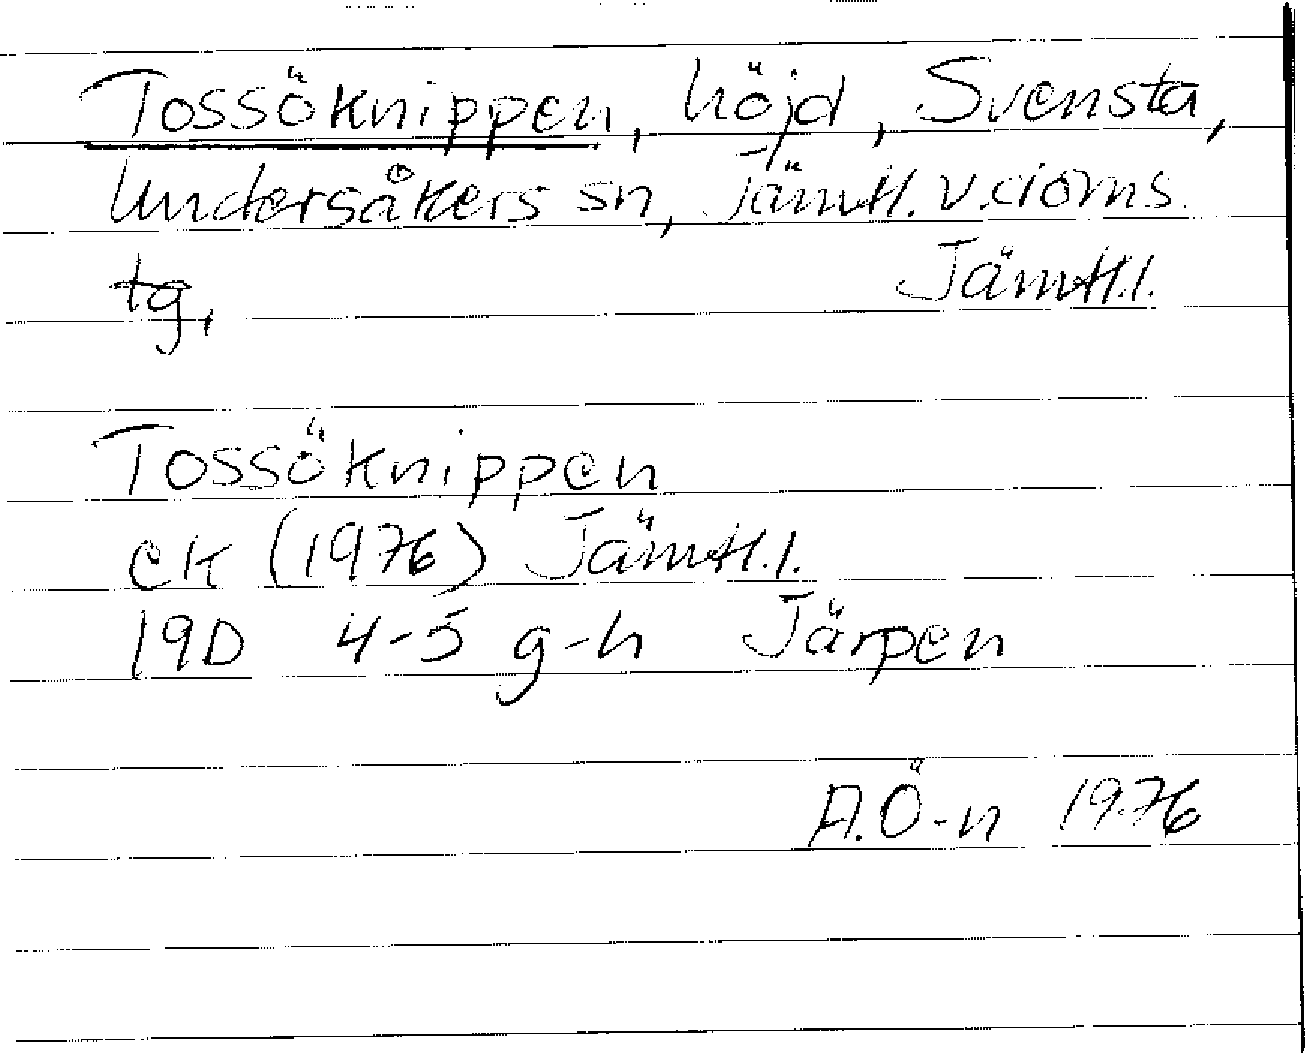 Tossöknippen, höjd, Svensta,
Undersåkers sn, Jämtl. v. doms.
tg, Jämtl. l.
Tossöknippen
ek (1976) Jämtl. l.
19D 4-5 g-h Järpen
A.Ö-n 1976